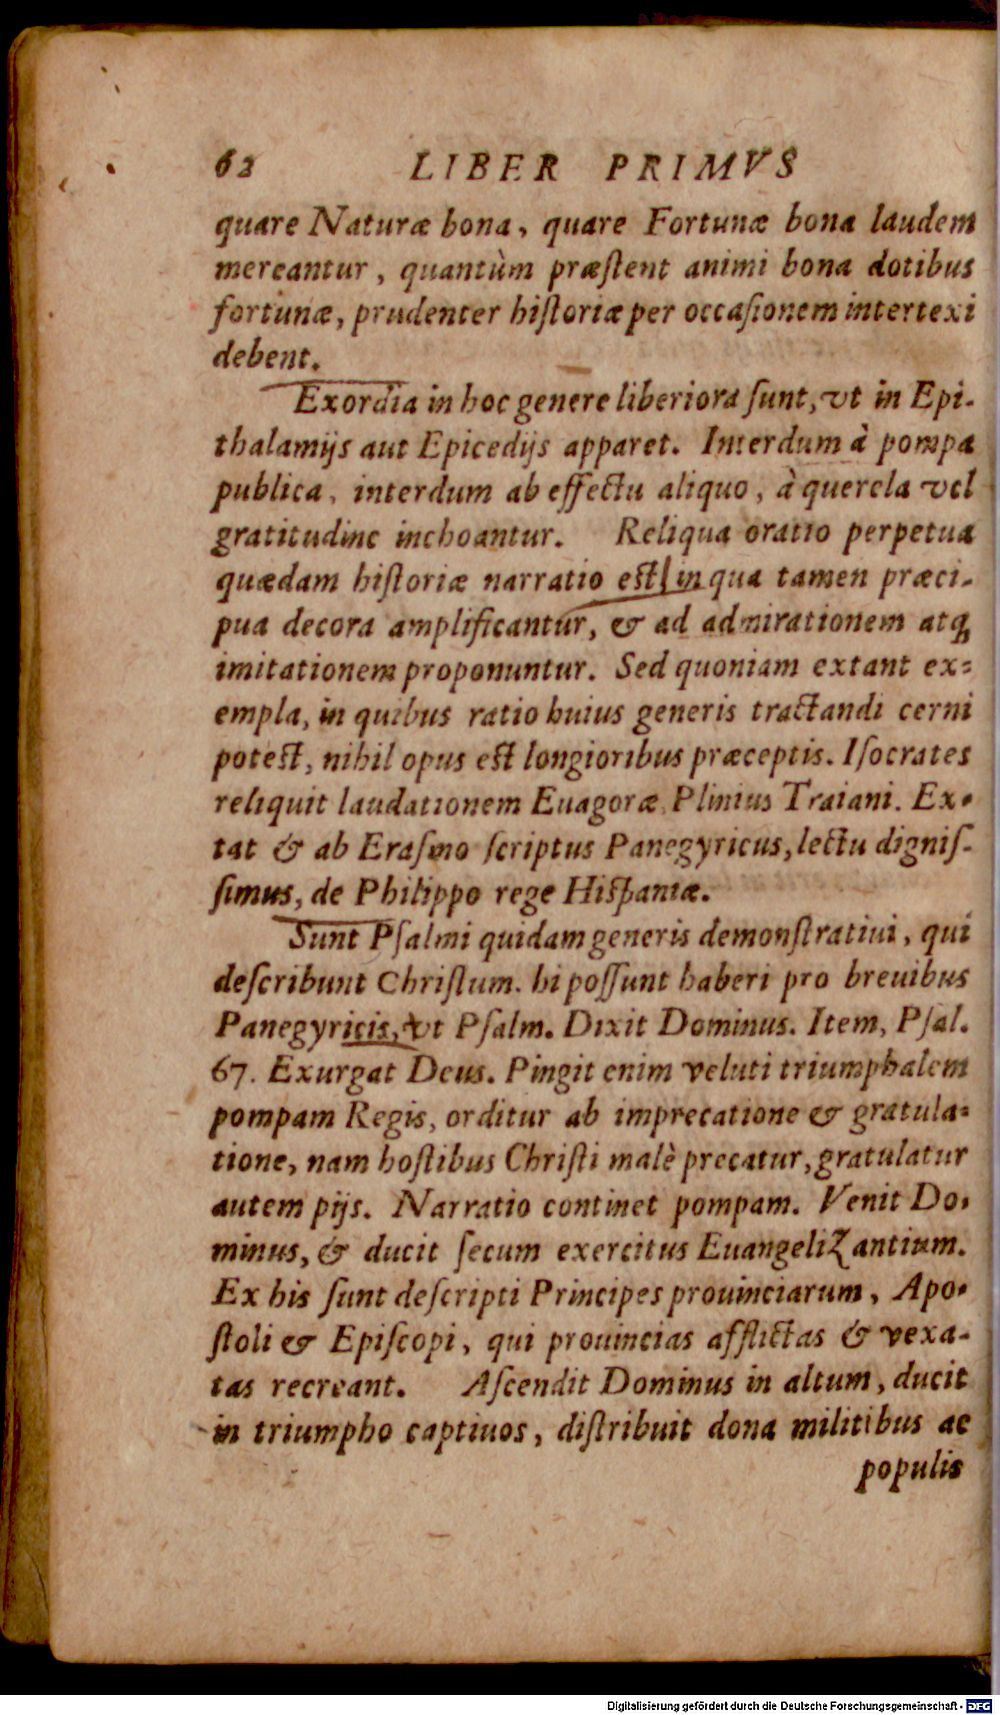 62 LIBER PRIMVS
quare Naturæ bona, quare Fortunæ bona laudem
mereantur, quantùm præſtent animi bona dotibus
fortunæ, prudenter hiſtoriæ per occaſionem intertexi
debent.
Exordia in hoc genere liberiora ſunt, vt in Epi-
thalamijs aut Epicedijs apparet. Interdum à pompa
publica, interdum ab effectu aliquo, à querela vel
gratitudine inchoantur. Reliqua oratio perpetua
quædam hiſtoriæ narratio est, in qua tamen præci-
pua decora amplificantur, & ad admirationem atq́
imitationem proponuntur. Sed quoniam extant ex-
empla, in quibus ratio huius generis tractandi cerni
potest, nihil opus est longioribus præceptis. Iſocrates
reliquit laudationem Euagoræ, Plinius Traiani. Ex-
tat & ab Eraſmo ſcriptus Panegyricus, lectu digniſ-
ſimus, de Philippo rege Hiſpaniæ.
Sunt Pſalmi quidam generis demonſtratiui, qui
deſcribunt Chriſtum. hi poſſunt haberi pro breuibus
Panegyricis, vt Pſalm. Dixit Dominus. Item, Pſal.
67. Exurgat Deus. Pingit enim veluti triumphalem
pompam Regis, orditur ab imprecatione & gratula-
tione, nam hoſtibus Chriſti malè precatur, gratulatur
autem pijs. Narratio continet pompam. Venit Do-
minus, & ducit ſecum exercitus Euangelizantium.
Ex his ſunt deſcripti Principes prouinciarum, Apo-
ſtoli & Epiſcopi, qui prouincias afflictas & vexa-
tas recreant. Aſcendit Dominus in altum, ducit
in triumpho captiuos, diſtribuit dona militibus ac
populis
Digitalisierung gefördert durch die Deutsche Forschungsgemeinschaft - DFG